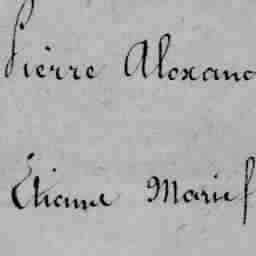 Pierre Alexand
Etienne Marie f